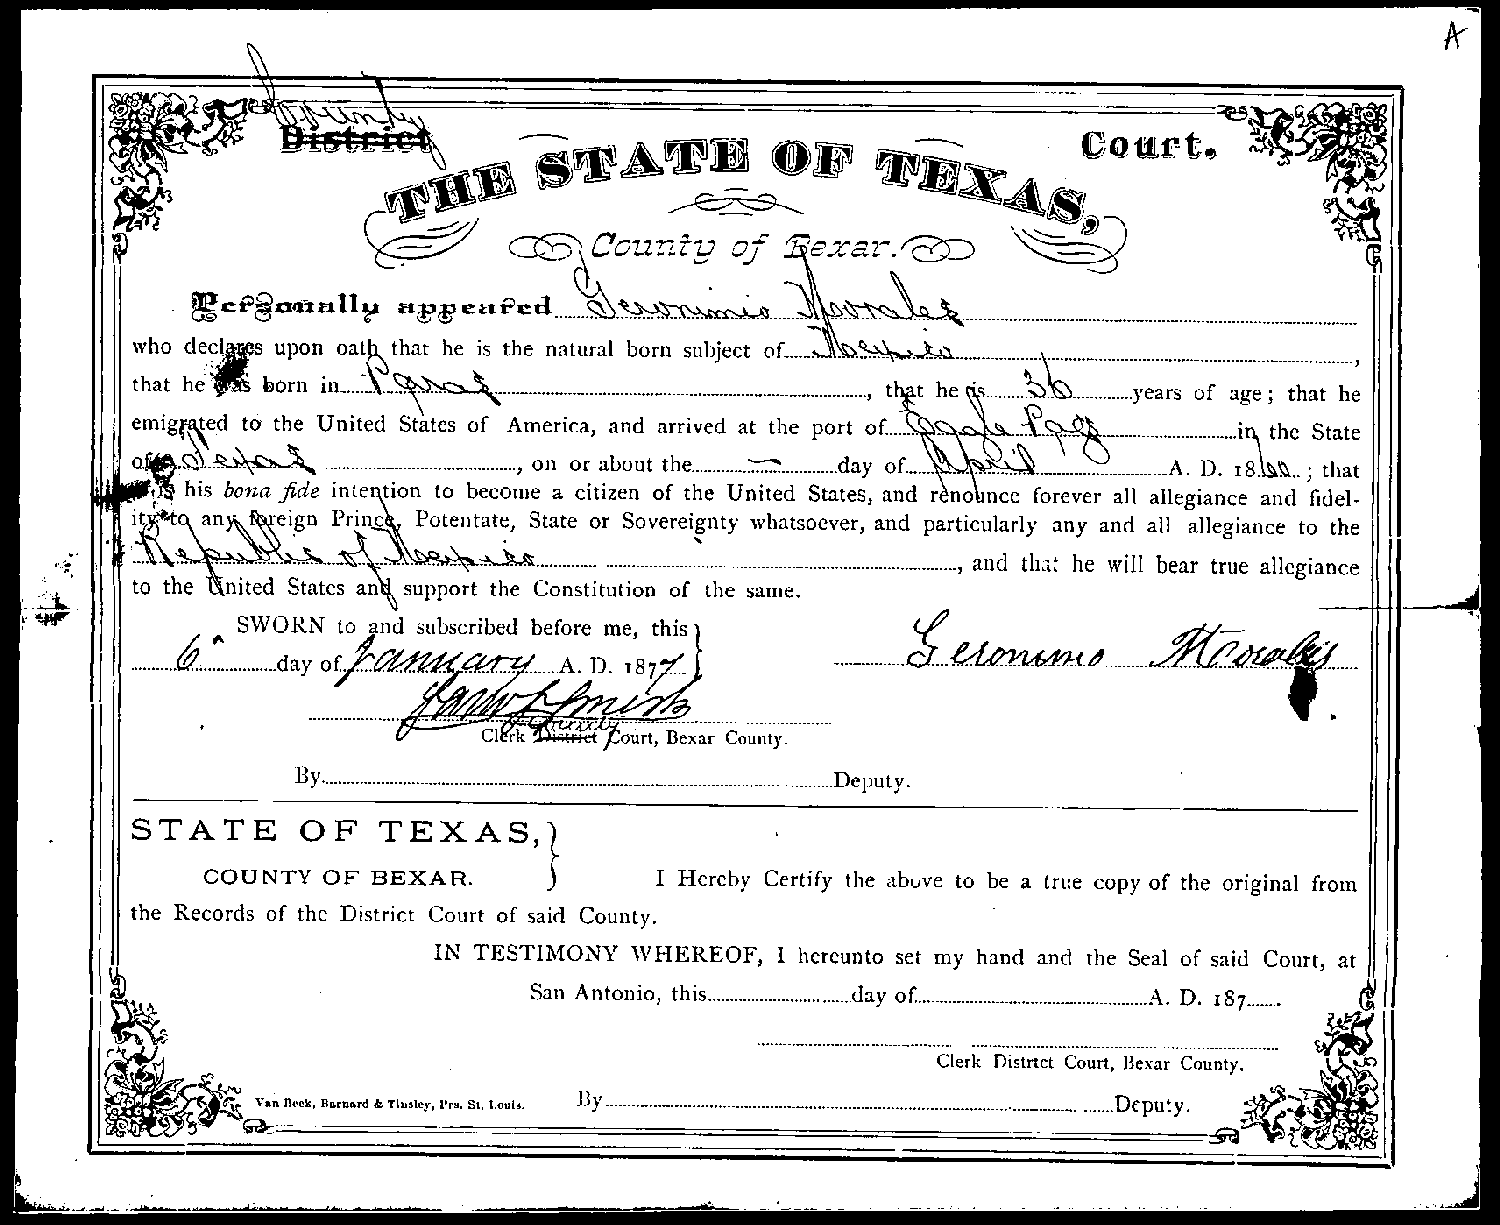 A
County
District Court.
THE STATE OF TEXAS,
County of Bexar.
Personally appeared Geronimio Morales
who declares upon oath that he is the natural born subject of Mexico,
that he was born in Paras, that he is 36 years of age; that he
emigrated to the United States of America, and arrived at the port of Eagle Pass in the State
of Texas, on or about the — day of April A. D. 18; that
is his bona fide intention to become a citizen of the United States, and renounce forever all allegiance and fidel-
ity to any foreign Prince, Potentate, State or Sovereignty whatsoever, and particularly any and all allegiance to the
Republic of Mexico, and that he will bear true allegiance
to the United States and support the Constitution of the same.
SWORN to and subscribed before me, this
6 day of January A. D. 1877 Geronimo Morales
Sam S Smith
County
Clerk District Court, Bexar County.
By Deputy.
STATE OF TEXAS,
COUNTY OF BEXAR.
I Hereby Certify the above to be a true copy of the original from
the Records of the District Court of said County.
IN TESTIMONY WHEREOF, I hereunto set my hand and the Seal of said Court, at
San Antonio, this day of A. D. 187 .
Clerk District Court, Bexar County.
Van Beek, Barnard & Tinsley, Prs. St. Louis. By Deputy.